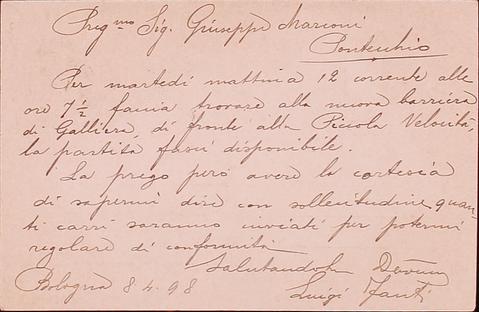 Preg.mo Sig. Giuseppe Marconi
Pontecchio
Per martedì mattina 12 corrente alle
ore 7½ faccia trovare alla nuova barriera
di Galliera, di fronte alla Piccola Velocità,
la partita fasci disponibile.
La prego però avere la cortesia
di sapermi dire con sollecitudine quan-
ti carri saranno inviati per potermi
regolare di conformità
Salutandola Devmo
Bologna 8.4.98 Luigi Fanti